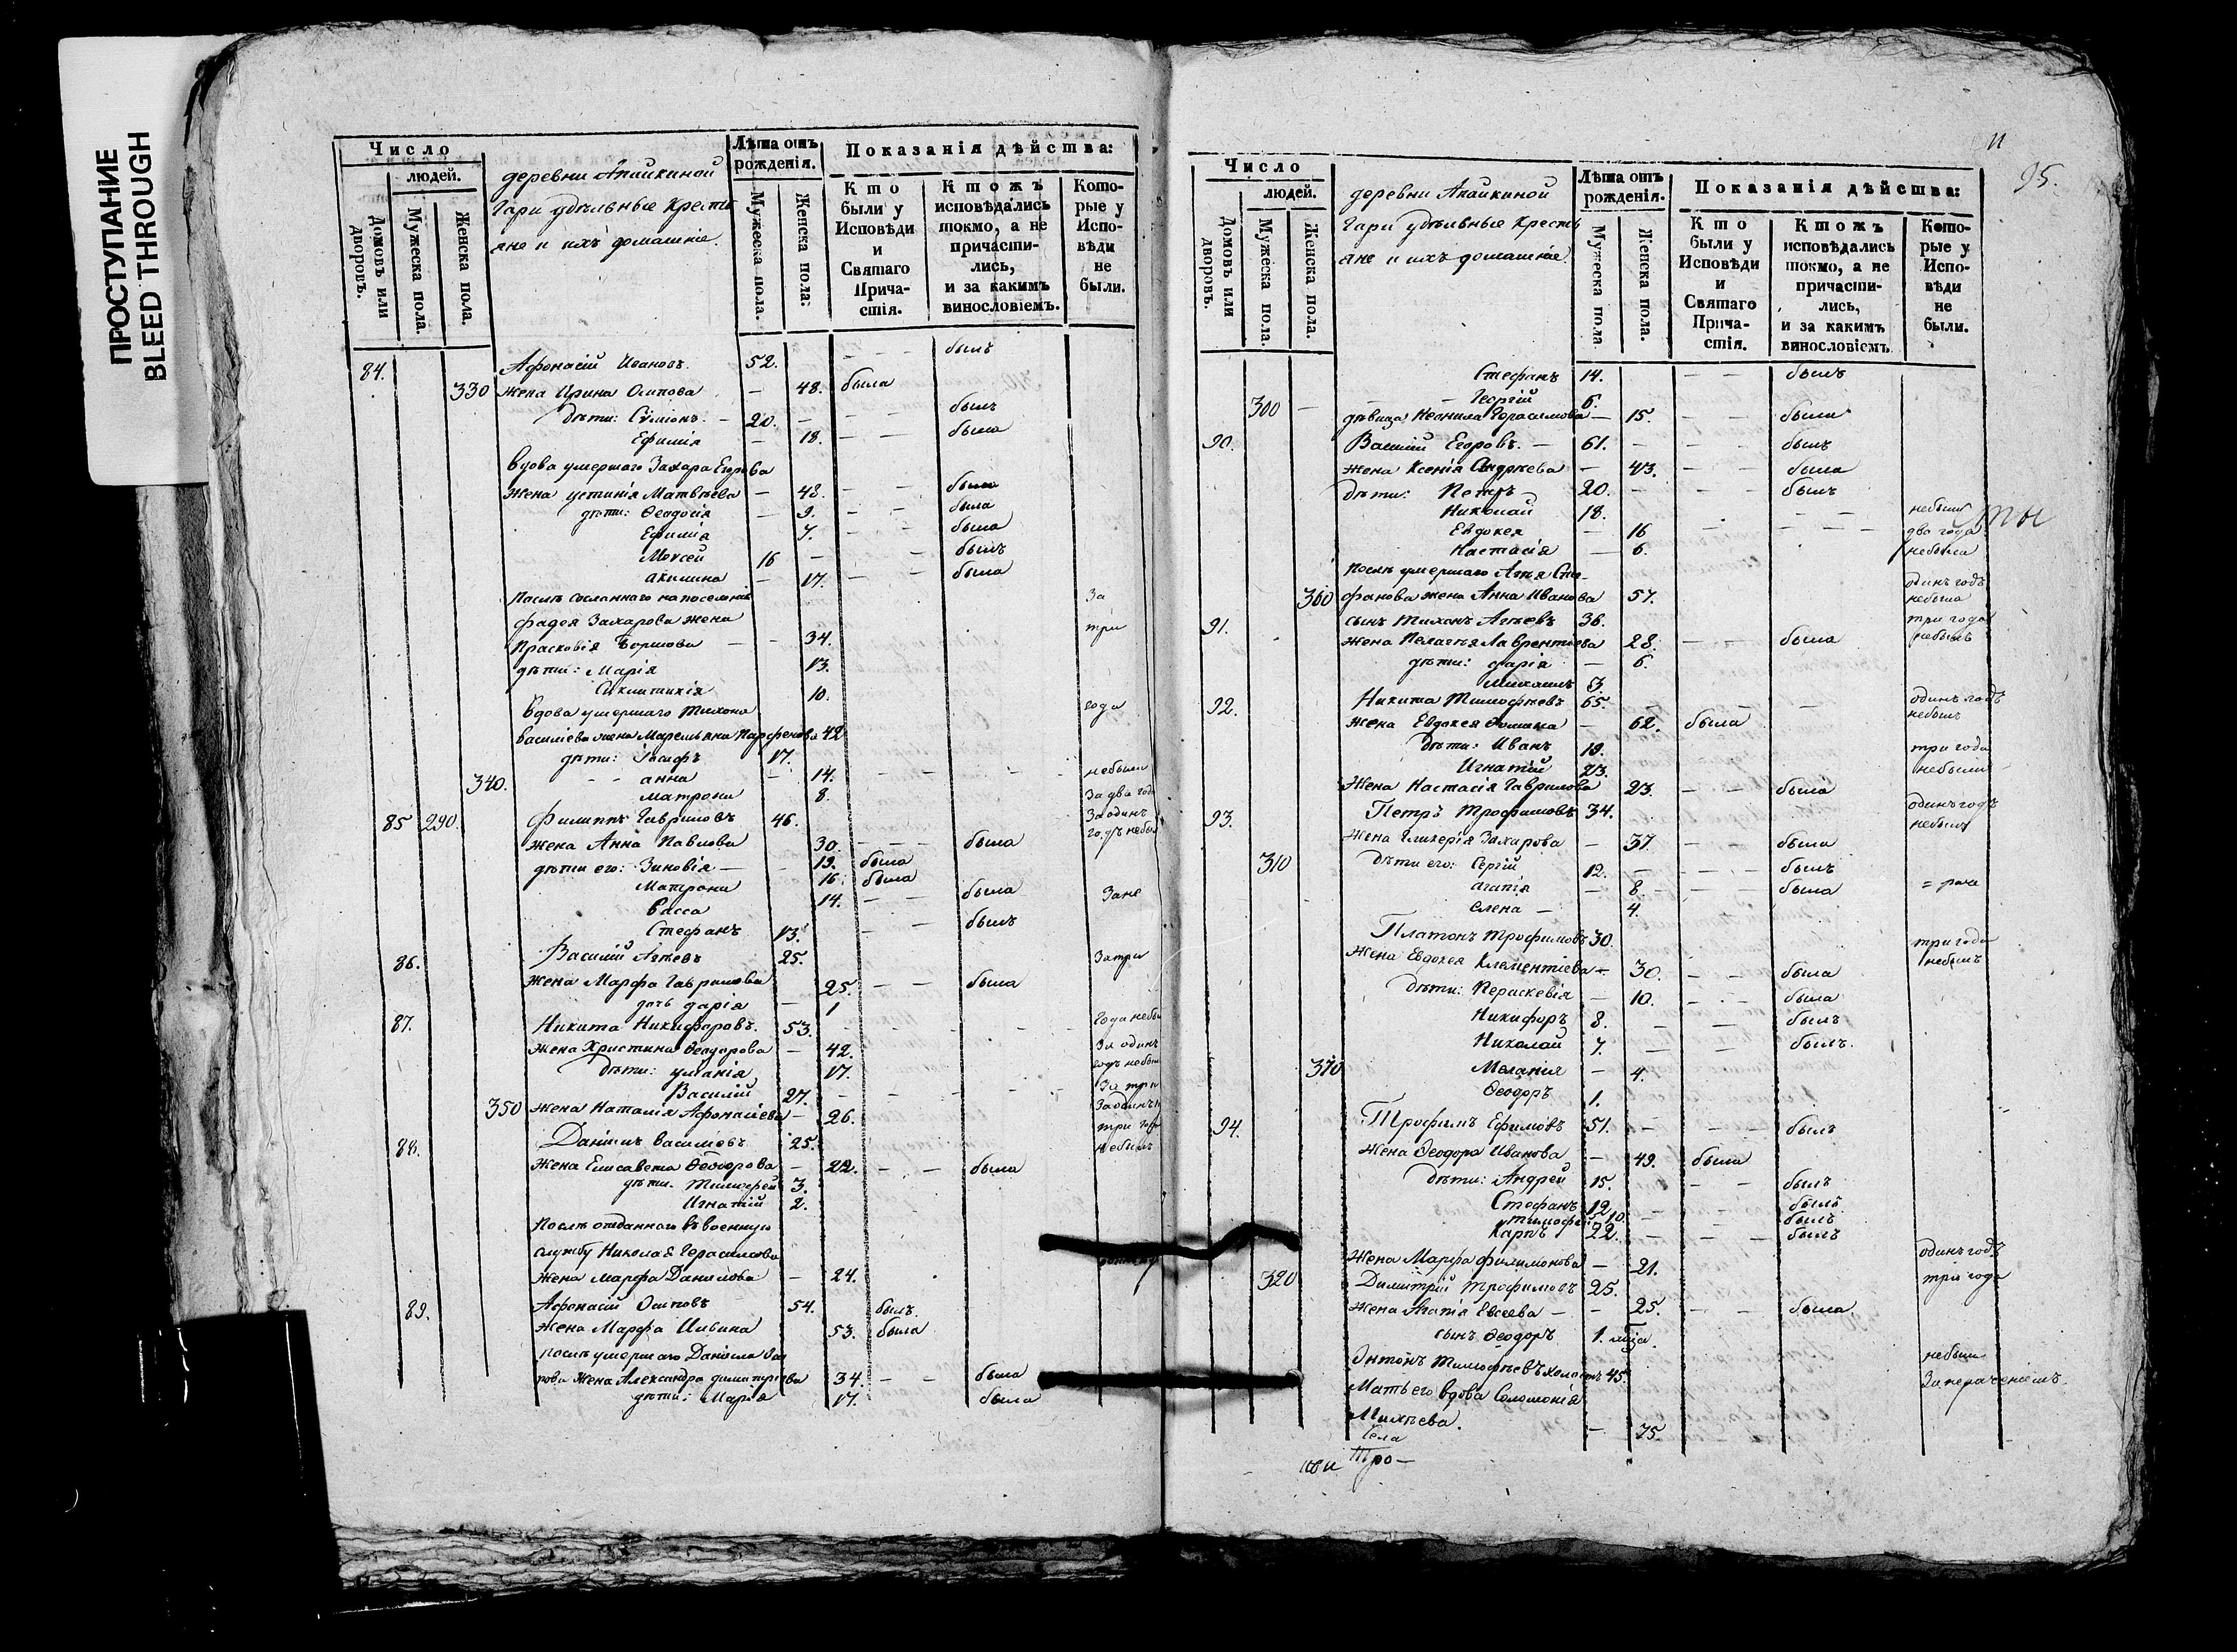 ПРОСТУПАНИЕ
BLEED THROUGH
Число
людей.
Домовъ или дворовъ.
Мужеска пола.
Женска пола.
деревни Апайкиной
Гари удѣльные крестья
яне и ихъ домашніе.
Лѣта отъ рожденія.
Мужеска пола.
Женска пола.
Показанія дѣйства:
Кто были у Исповѣди и Святаго Причастія.
Ктожъ исповѣдались токмо, а не причастились, и за какимъ винословіемъ.
Которые у Исповѣди не были.
84. Афонасій Ивановъ. 52. былъ
330 жена Ирина Осипова — 48. была
дѣти: Сѵміонъ. 20. былъ
Ефимія — 18. была
вдова умершаго Захара Егорова
жена Устинія Матвѣева — 48. была
дѣти: Ѳеодосія — 9. была
Ефимія 7. была
Моисей 16 — былъ
Акилина — 17. была
послѣ сосланнаго на поселеніе За
Фадея Захарова жена
Прасковія — 34. три
дѣти: Марія 13.
10.
Вдова умершаго Тихона года
Василіева жена Парфенова 42
дѣти: Іосифъ 17.
340. Анна — 14. небыли
Матрона 8. За два года
85 290. Филиппъ Гавриловъ 46. За одинъ
жена Анна Павлова 30. была годъ небылъ
дѣти его: Зиновія — 19. была
Матрона 16. была
Васса 14. была Зане
Стефанъ 13. былъ
86. Василій Агѣевъ 25. За три
жена Марфа Гаврилова 25. была
дочь Дарія — 1
87. Никита Никифоровъ. 53. года небы
жена Христина Ѳеодорова — 42. За одинъ
дѣти: Уліанія 17. годъ небы
Василій 27. За три
350 жена Наталія Афонасіева — 26. За одинъ
88. Даніилъ Василіевъ 25. три года небылъ
жена Елисавета Ѳеодорова — 22. была
дѣти: Тимофей 3.
Игнатій 2.
послѣ отданнаго въ военную
службу Николая Герасимова
жена Марфа Данилова — 24.
89. Афонасій Осиповъ 54. былъ
жена Марфа Ильина 53. была
послѣ умершаго Даніила
рова жена Александра Димитріева 34. была
дѣти: Марія 17. была
95.
Число
людей.
Домовъ или дворовъ.
Мужеска пола.
Женска пола.
деревни Апайкиной
Гари удѣльные кресть
яне и ихъ домашніе.
Лѣта отъ рожденія.
Мужеска пола
Женска пола.
Показанія дѣйства:
Кто были у Исповѣди и Святаго Причастія.
Ктожъ исповѣдались токмо, а не причастились, и за какимъ винословіемъ
Которые у Исповѣди не были.
Стефанъ 14. былъ
300 Георгій 6.
дѣвица Неонила Герасимова — 15. была
90. Василій Егоровъ. — 61. былъ
жена Ксенія Андреева — 43. была
дѣти: Петръ 20. былъ
Николай 18. небылъ
Евдокея — 16 два года
Настасія — 6. небыла
послѣ умершаго Агѣя Сте-
360 фанова жена Анна Иванова 57. одинъ годъ небыла
91. сынъ Тихонъ Агѣевъ 36. три года небылъ
жена Пелагѣя Лаврентіева 28. была
дѣти: Дарія — 6.
Михаилъ 3.
92. Никита Тимофѣевъ 65. одинъ годъ небылъ
жена Евдокея Фомина — 62. была
дѣти: Иванъ 19. три года
Игнатій 23. небыли
Жена Настасія Гаврилова 23. была
93. Петръ Трофимовъ 34. одинъ годъ небылъ
жена Гликерія Захарова — 37. была
310 дѣти его: Сергій 12. былъ
Агапія — 8. была
Елена — 4.
Платонъ Трофимовъ 30. три года небылъ
Жена Евдокея Клементіева — 30. была
дѣти: Параскевія — 10. была
Никифоръ 8. былъ
Николай 7. былъ.
370 Меланія — 4.
Ѳеодоръ 1.
94. Трофимъ Ефимовъ 51. былъ
Жена Ѳеодора Иванова — 49. была
дѣти: Андрей 15. былъ
Стефанъ 12. былъ
Тимофей 10. былъ
Карпъ 22. былъ
Жена Марфа Филимонова — 21. одинъ годъ
320 Димитрій Трофимовъ 25. три года
жена Агапія Евсеева — — 25. была
сынъ Ѳеодоръ 1. мца.
Антонъ Тимофѣевъ холостъ 45. небыли
Мать его вдова Соломонія
Михѣева. — 75
Села
Тро-